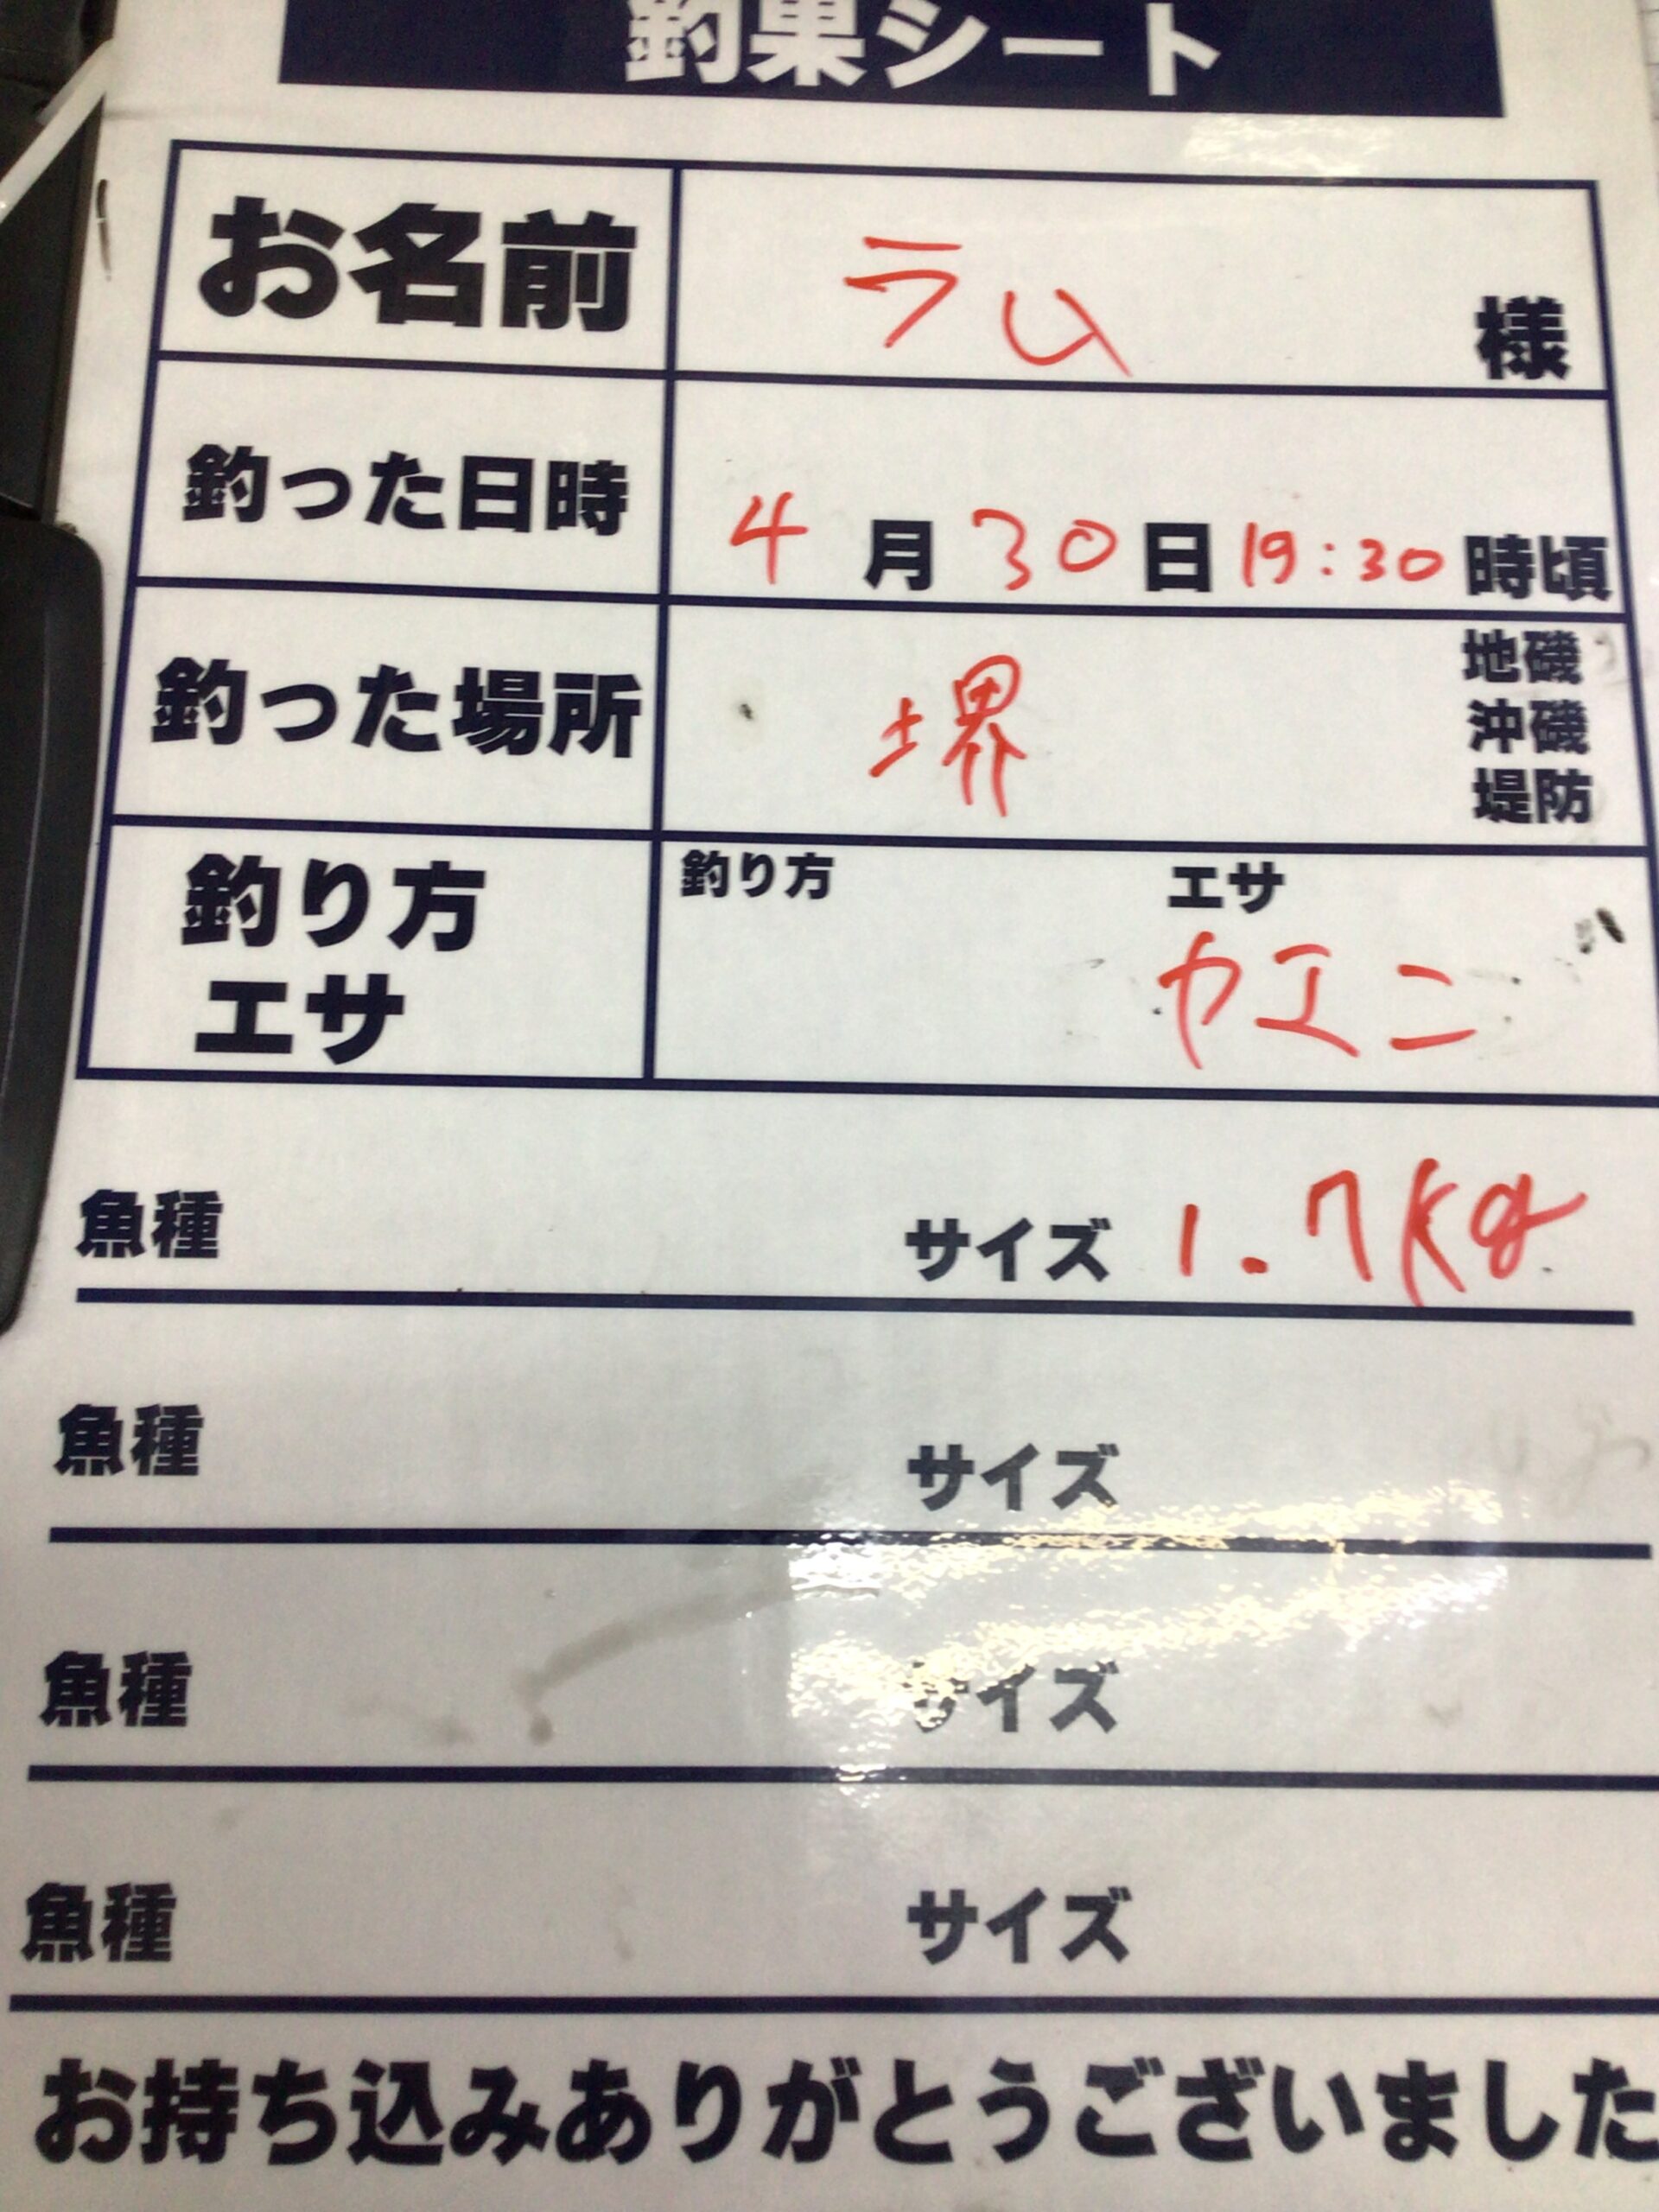 釣果シート
お名前 ラム 様
釣った日時 4月30日 19:30時頃
釣った場所 堺 地磯
沖磯
堤防
釣り方 釣り方 エサ
エサ カエニ
魚種 サイズ 1.7kg
魚種 サイズ
魚種 サイズ
魚種 サイズ
お持ち込みありがとうございました